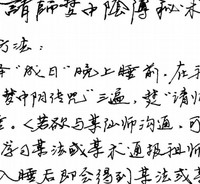 請師夢中陰傳秘术
方法:
"成日"晚上睡前.在
夢中阴传咒"三遍,焚"请师
.<若欲与某仙师沟通.可
学习某法或某术通报祖师
入睡后即会得到某法或某